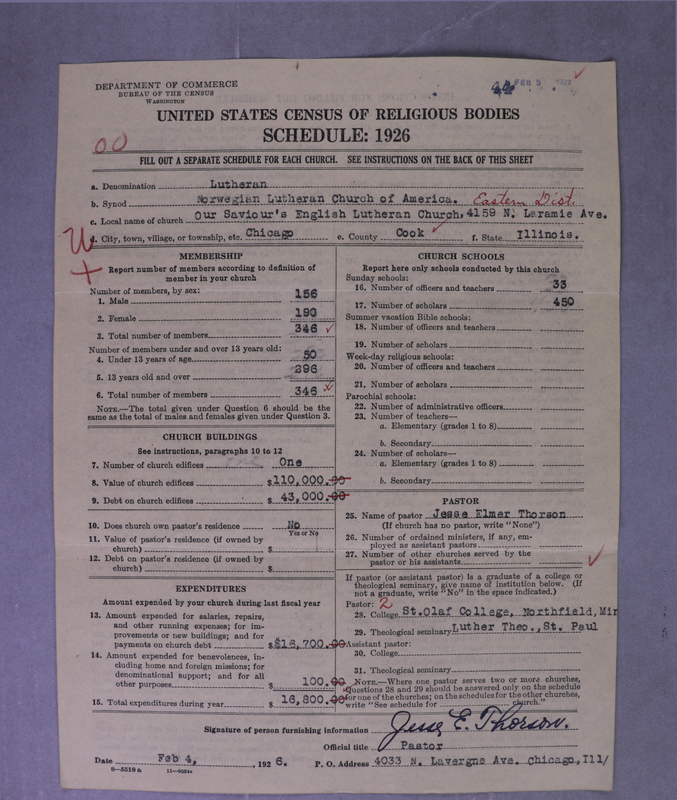 DEPARTMENT OF COMMERCE
BUREAU OF THE CENSUS
WASHINGTON
FEB 5 1927
UNITED STATES CENSUS OF RELIGIOUS BODIES
SCHEDULE: 1926
00
FILL OUT A SEPARATE SCHEDULE FOR EACH CHURCH. SEE INSTRUCTIONS ON THE BACK OF THIS SHEET
a. Denomination Lutheran
b. Synod Norwegian Lutheran Church of America. Eastern Dist.
c. Local name of church Our Saviour's English Lutheran Church, 4159 N. Laramie Ave.
d. City, town, village, or township, etc. Chicago e. County Cook f. State Illinois.
MEMBERSHIP
Report number of members according to definition of
member in your church
Number of members, by sex:
1. Male 156
2. Female 190
3. Total number of members 346
Number of members under and over 13 years old:
4. Under 13 years of age 50
5. 13 years old and over 296
6. Total number of members 346
NOTE.—The total given under Question 6 should be the
same as the total of males and females given under Question 3.
CHURCH BUILDINGS
See instructions, paragraphs 10 to 12
7. Number of church edifices One
8. Value of church edifices $110,000.00
9. Debt on church edifices $43,000.00
10. Does church own pastor's residence No
Yes or No
11. Value of pastor's residence (if owned by
church) $
12. Debt on pastor's residence (if owned by
church) $
EXPENDITURES
Amount expended by your church during last fiscal year
13. Amount expended for salaries, repairs,
and other running expenses; for im-
provements or new buildings; and for
payments on church debt $$16,700.00
14. Amount expended for benevolences, in-
cluding home and foreign missions; for
denominational support; and for all
other purposes $ 100.00
15. Total expenditures during year $ 16,800.00
CHURCH SCHOOLS
Report here only schools conducted by this church
Sunday schools:
16. Number of officers and teachers 33
17. Number of scholars 450
Summer vacation Bible schools:
18. Number of officers and teachers
19. Number of scholars
Week-day religious schools:
20. Number of officers and teachers
21. Number of scholars
Parochial schools:
22. Number of administrative officers
23. Number of teachers—
a. Elementary (grades 1 to 8)
b. Secondary
24. Number of scholars—
a. Elementary (grades 1 to 8)
b. Secondary
PASTOR
25. Name of pastor Jesse Elmer Thorson
(If church has no pastor, write "None")
26. Number of ordained ministers, if any, em-
ployed as assistant pastors
27. Number of other churches served by the
pastor or his assistants
If pastor (or assistant pastor) is a graduate of a college or
theological seminary, give name of institution below. (If
not a graduate, write "No" in the space indicated.)
Pastor: 2
28. College St.Olaf College, Northfield, Min
29. Theological seminary Luther Theo., St. Paul
Assistant pastor:
30. College
31. Theological seminary
NOTE.—Where one pastor serves two or more churches,
Questions 28 and 29 should be answered only on the schedule
for one of the churches; on the schedules for the other churches,
write "See schedule for church."
Signature of person furnishing information Jesse E. Thorson.
Official title Pastor
Date Feb 4, , 1926. P. O. Address 4033 N. Lavergne Ave. Chicago, Ill/
8—5518a 11—9054a